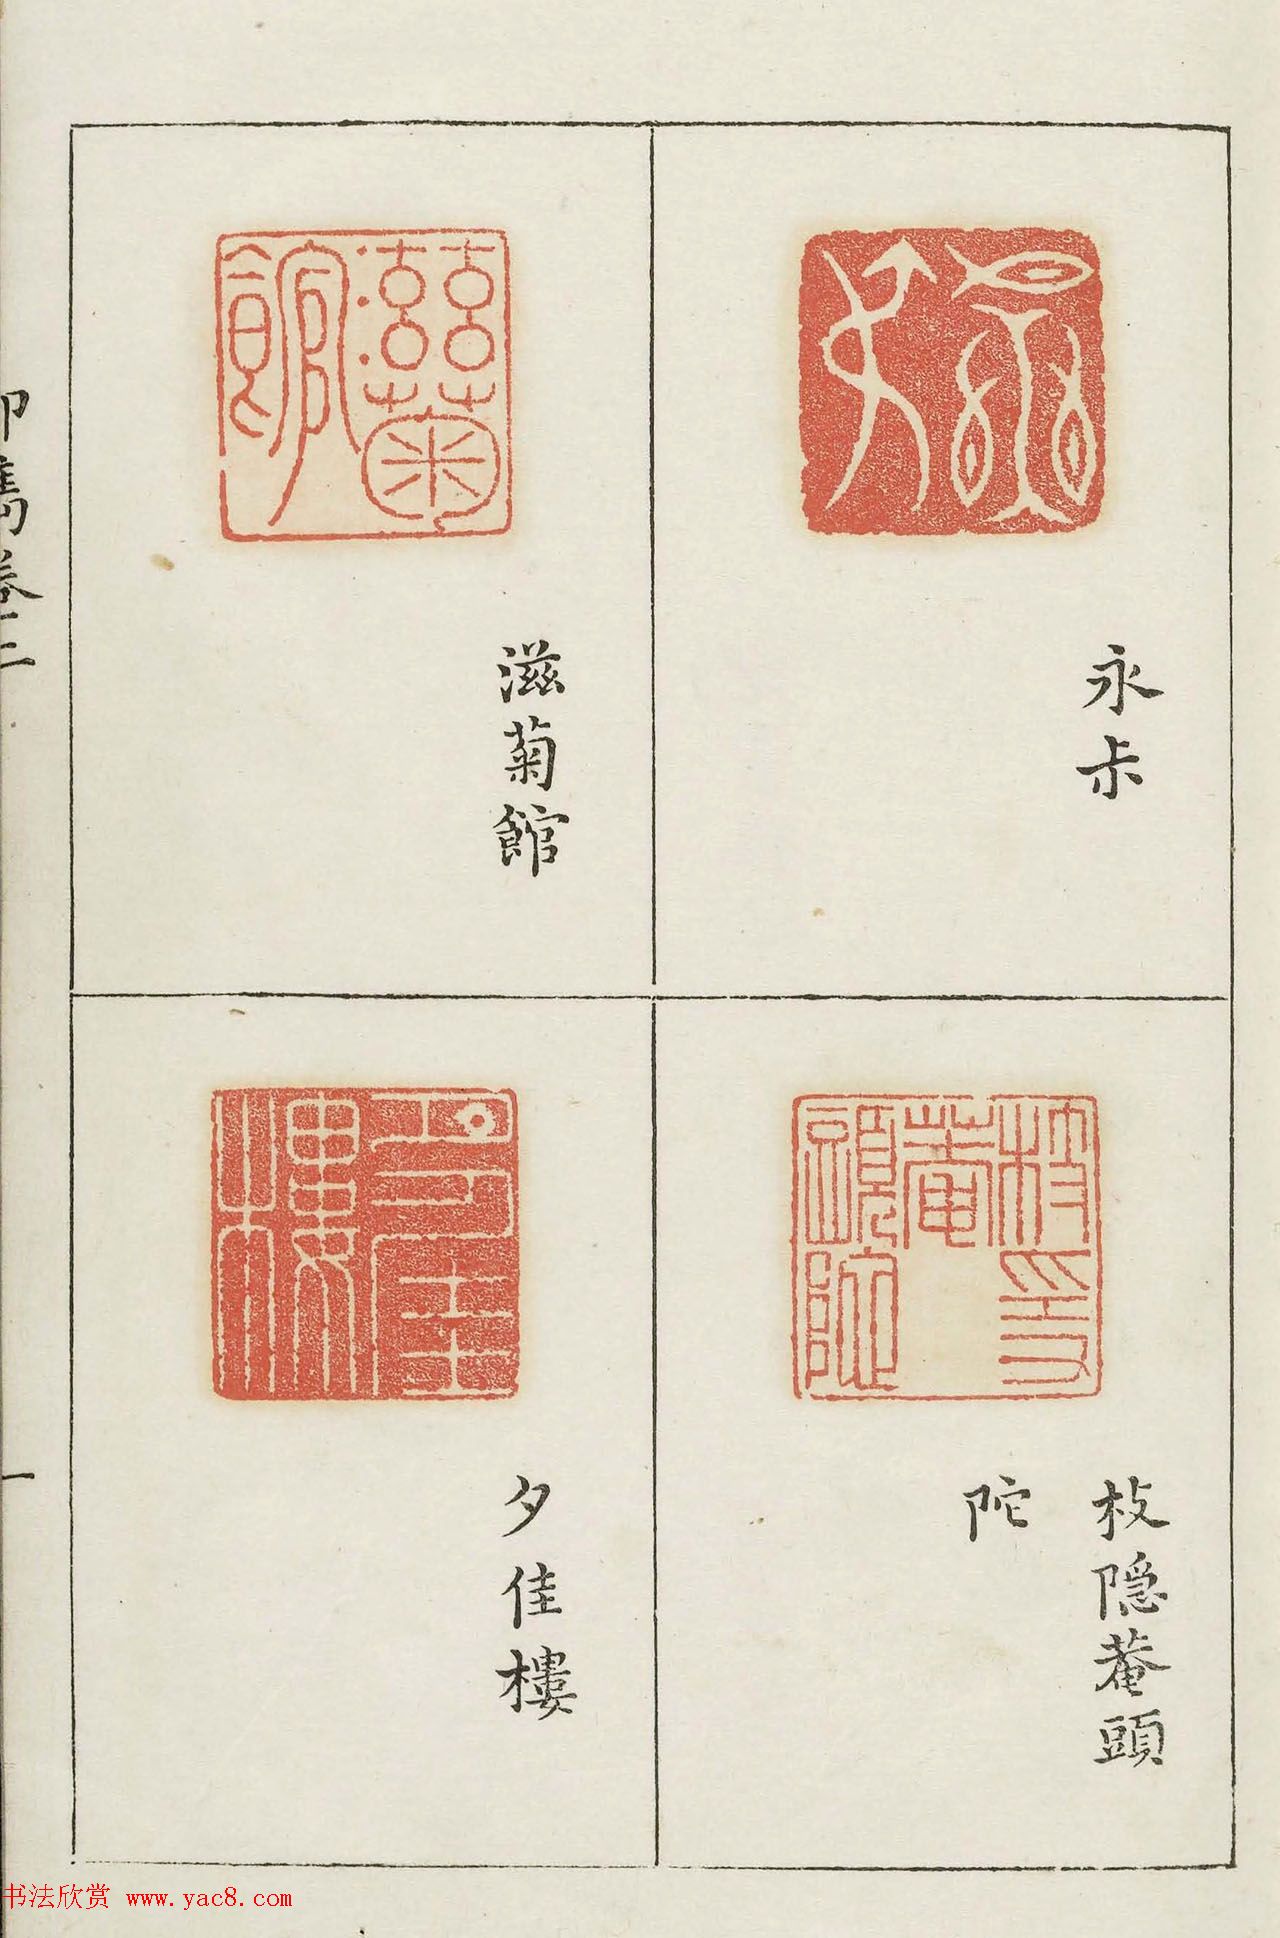 永尗
滋菊館
枝隱菴頭
陀
夕佳樓
印雋卷三
一
书法欣赏 www.yac8.com